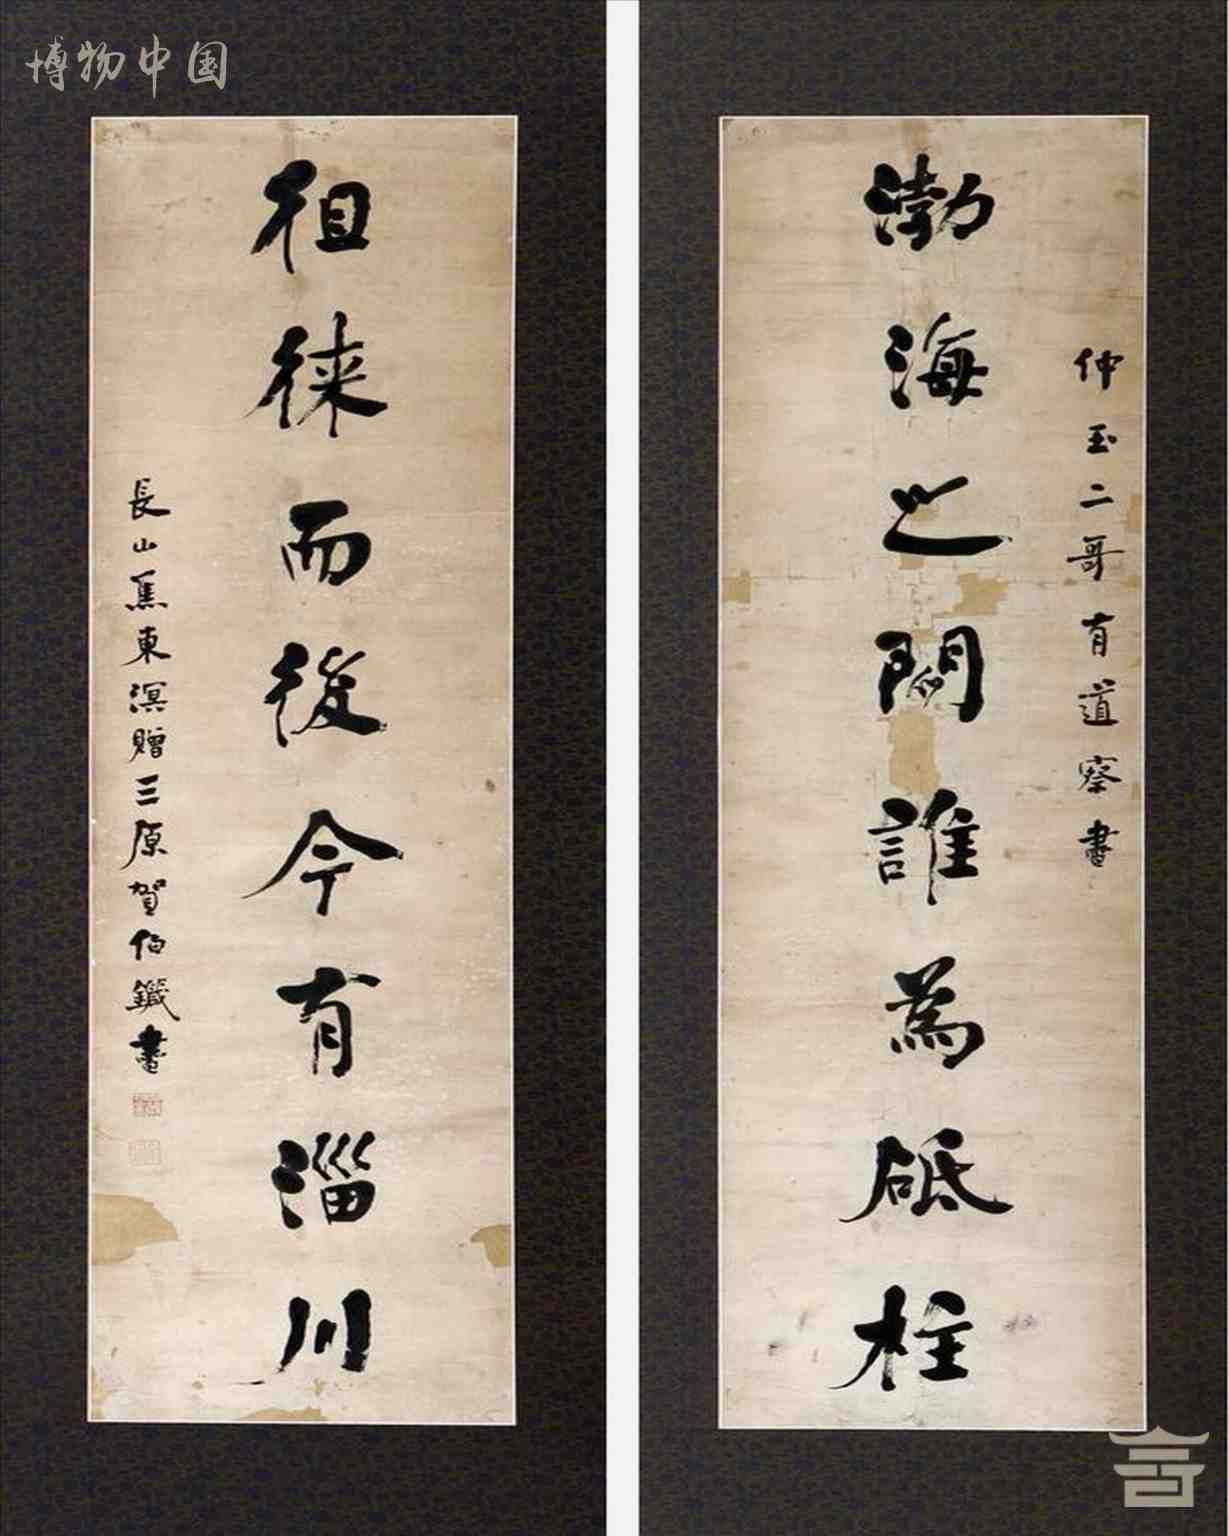 博物中国
仲玉二哥有道察書
渤海之闊誰為砥柱
徂徠而後今有淄川
長山焦東溟贈三原賀伯鑯書